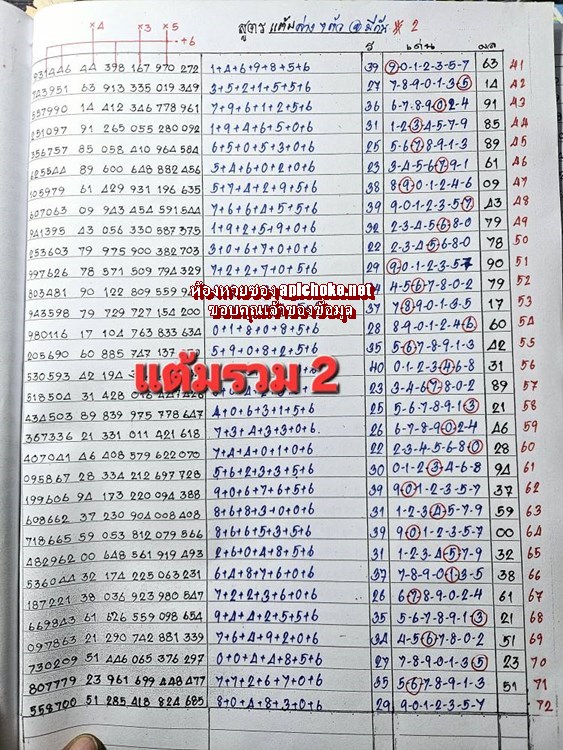 ×4 ×3 ×5
+6
สูตร แต้มต่าง 7 ตัว (4) มีกิน * 2
รวม เด่น ผล
931446 44 398 167 970 272 1+4+6+9+8+5+6 39 9-0-1-2-3-5-7 63 41
743951 63 913 335 019 349 3+5+2+1+5+5+6 27 7-8-9-0-1-3-5 14 42
557990 14 412 346 778 961 7+9+6+1+2+5+6 36 6-7-8-9-0-2-4 91 43
251097 91 265 055 280 092 1+9+4+6+5+0+6 31 1-2-3-4-5-7-9 85 44
356757 85 058 410 964 584 6+5+0+5+3+0+6 25 5-6-7-8-9-1-3 89 45
625544 89 600 648 882 456 5+4+6+0+2+0+6 23 3-4-5-6-7-9-1 61 46
105979 61 429 931 196 635 5+7+4+2+9+5+6 38 8-9-0-1-2-4-6 09 47
607063 09 943 454 591 544 7+6+6+4+5+5+6 39 9-0-1-2-3-5-7 43 48
941395 43 056 330 587 375 1+9+2+5+9+0+6 32 2-3-4-5-6-8-0 79 49
253603 79 975 900 382 703 3+0+6+7+0+0+6 22 2-3-4-5-6-8-0 78 50
997626 78 571 509 794 329 7+2+2+7+0+5+6 29 9-0-1-2-3-5-7 90 51
803481 90 122 809 559 4-5-6-7-8-0-2 79 52
943598 79 729 727 154 200 37 7-8-9-0-1-3-5 17 53
980116 17 104 763 833 634 0+1+8+0+8+5+6 28 8-9-0-1-2-4-6 60 54
205690 60 885 747 137 5+9+0+8+2+5+6 35 5-6-7-8-9-1-3 42 55
530593 42 194 30 0-1-2-3-4-6-8 31 56
518504 31 428 23 3-4-5-6-7-8-0-2 89 57
434503 89 839 975 778 647 4+0+6+3+1+5+6 25 5-6-7-8-9-1-3 21 58
367336 21 331 011 421 618 7+3+4+3+3+0+6. 26 6-7-8-9-0-2-4 46 59
407041 46 408 579 622 070 7+4+4+0+1+0+6 22 2-3-4-5-6-8-0 28 60
095867 28 334 212 697 728 5+6+2+3+3+5+6 30 0-1-2-3-4-6-8 94 61
199606 94 173 220 094 388 9+0+6+7+6+5+6 39 9-0-1-2-3-5-7 37 62
608662 37 230 904 008 408 8+6+8+3+0+0+6 31 1-2-3-4-5-7-9 59 63
718665 59 053 812 079 566 8+6+6+5+3+5+6 39 9-0-1-2-3-5-7 00 64
482962 00 648 561 919 493 2+6+0+4+8+5+6 31 1-2-3-4-5-7-9 32 65
536044 32 174 225 063 231 6+4+8+7+6+0+6 37 7-8-9-0-1-3-5 38 66
187221 38 036 923 980 847 7+2+2+3+6+0+6 26 6-7-8-9-0-2-4 61 67
669843 61 626 559 098 654 9+4+4+2+5+5+6 35 5-6-7-8-9-1-3 21 68
097863 21 290 742 881 339 7+6+4+9+2+0+6 34 4-5-6-7-8-0-2 51 69
730209 51 446 065 376 297 0+0+4+4+8+5+6 27 7-8-9-0-1-3-5 23 70
807779 23 961 699 448 477 7+7+2+6+7+0+6 35 5-6-7-8-9-1-3 51 71
558700 51 285 418 824 685 8+0+4+8+3+0+6 29 9-0-1-2-3-5-7 - 72
ห้องหวยซอง apichoke.net
ขอบคุณเจ้าของข้อมูล
แต้มรวม 2